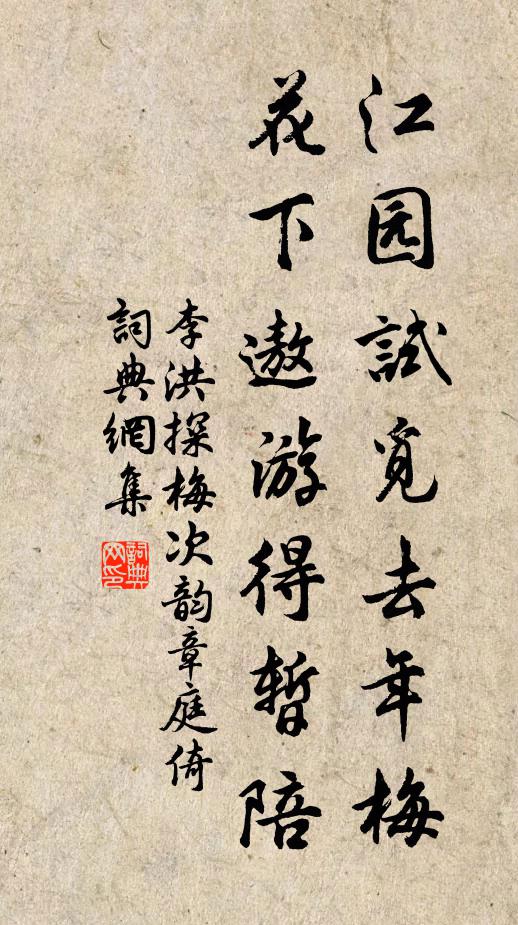 江园試覓去年梅
花下遨游得暫陪
李洪探梅次韵章庭倚
詞典網集
詞典网印